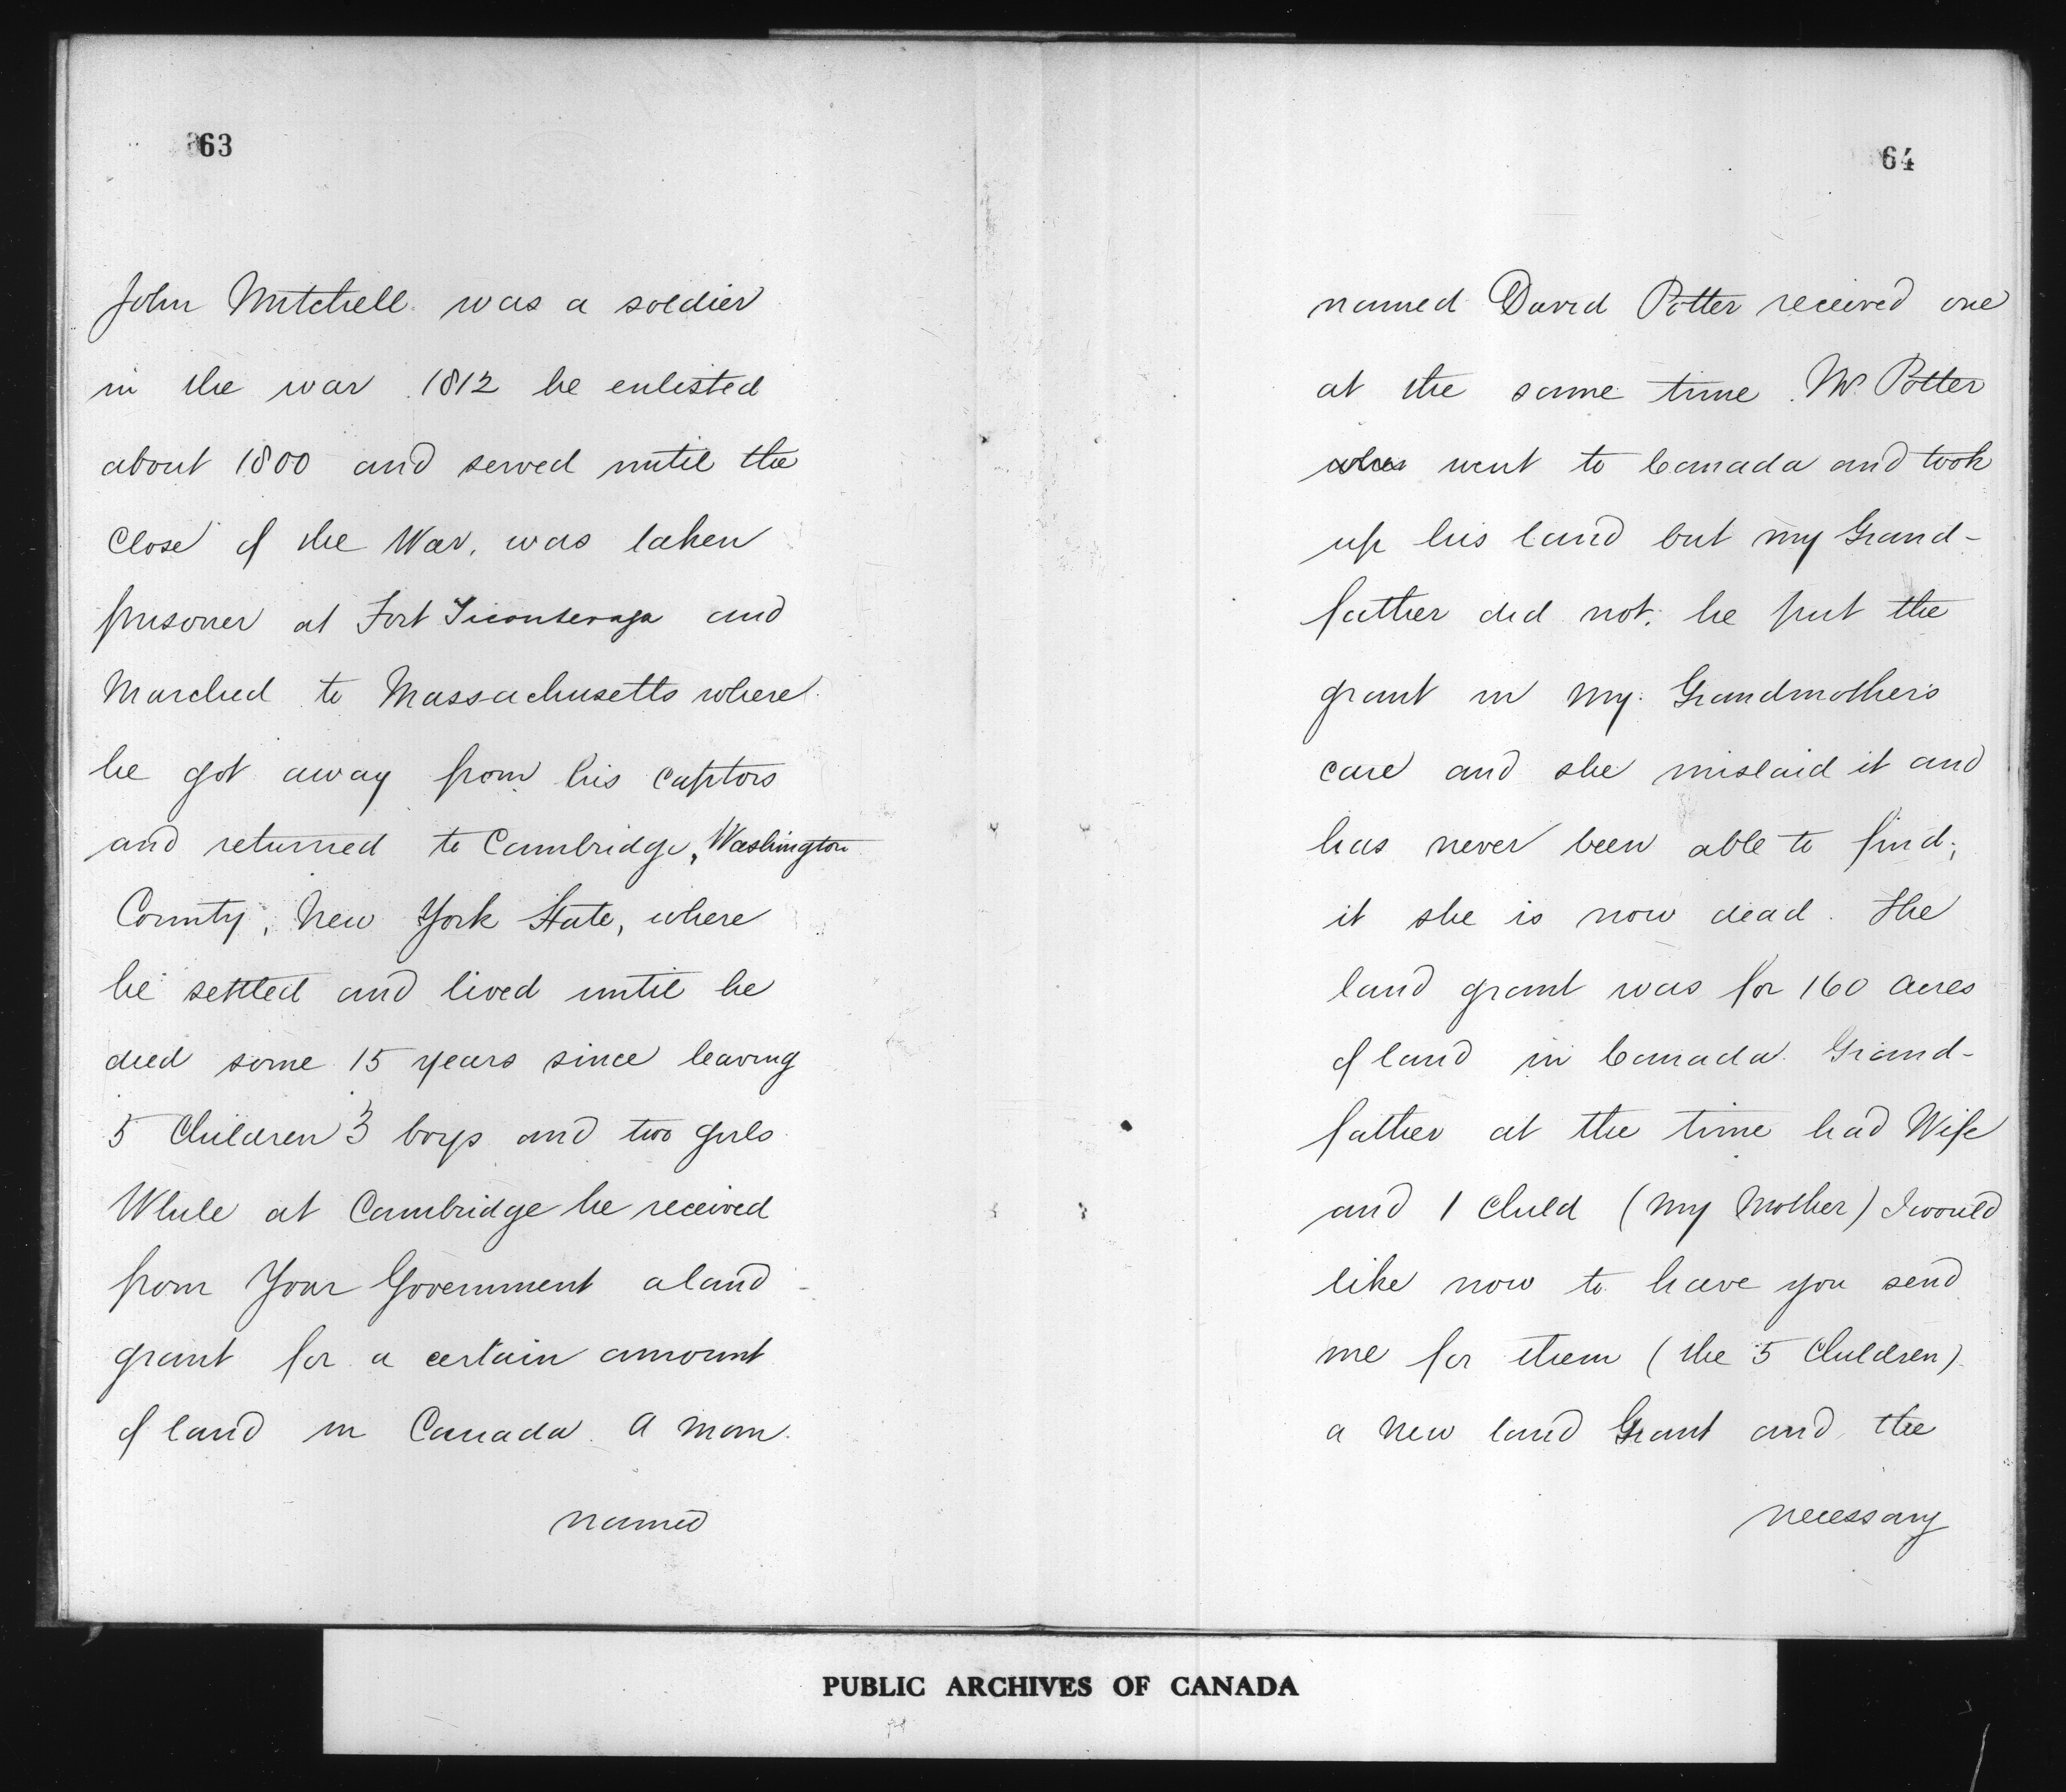 63
John Mitchell was a soldier
in the war 1812 he enlisted
about 1800 and served until the
close of the War, was taken
prisoner at Fort Ticonteraga and
Marched to Massachusetts where
he got away from his captors
and returned to Cambridge, Washington
County, New York State, where
he settled and lived until he
died some 15 years since leaving
5 Children 3 boys and two girls
While at Cambridge he received
from Your Government a land
grant for a certain amount
of land in Canada. A man
named
64
named David Potter received one
at the same time. Mr. Potter
went to Canada and took
up his land but my Grand-
father did not, he put the
grant in my Grandmothers
care and she mislaid it and
has never been able to find,
it she is now dead. The
land grant was for 160 acres
of land in Canada. Grand-
father at the time had Wife
and 1 Child (my Mother) I would
like now to have you send
me for them (the 5 Children)
a new land Grant and the
necessary
PUBLIC ARCHIVES OF CANADA